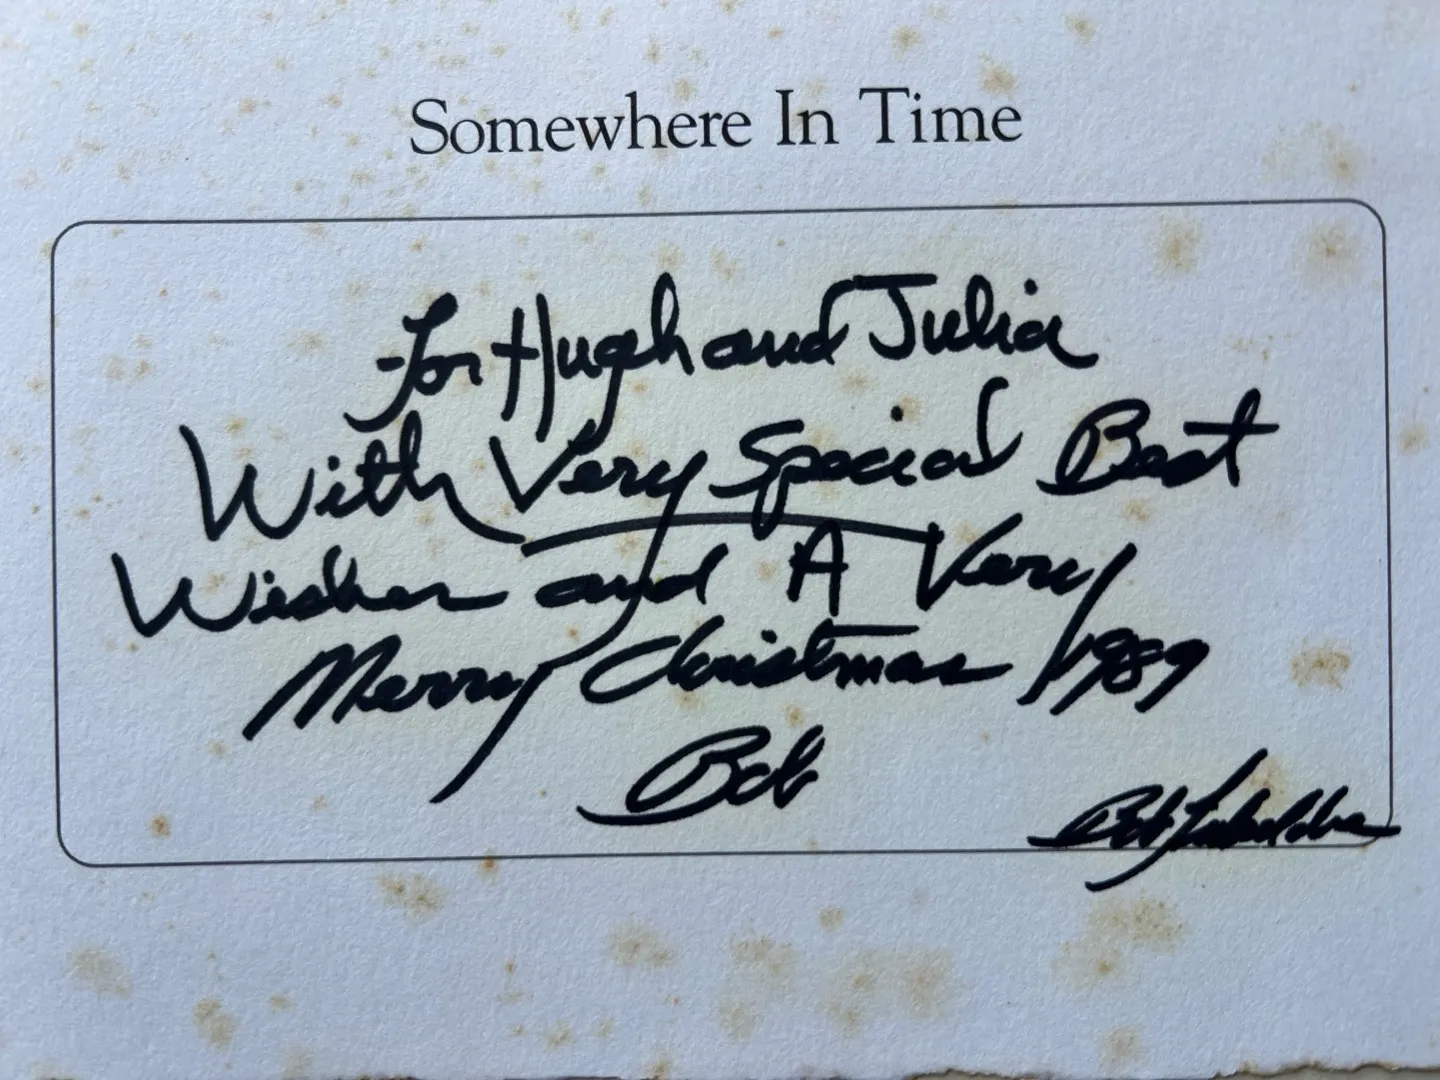 Somewhere In Time
For Hugh and Julia
With Very Special Best
Wishes and A Very
Merry Christmas 1989
Bob
Bob